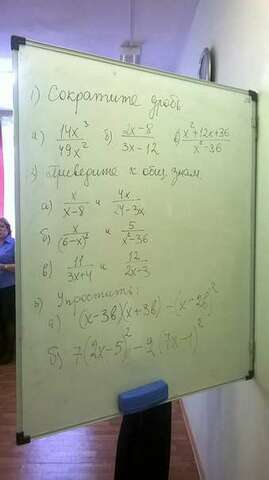 1) Сократите дробь
а) 14x³/49x² б) 2x-8/3x-12 в) x²+12x+36/x²-36
2) Приведите к общ. знам.
а) x/x-8 и 4x/24-3x
б) x/(6-x)² и 5/x²-36
в) 11/3x+4 и 12/2x-3
3) Упростить:
а) (x-3в)(x+3в)-(x-2в)²
б) 7(2x-5)²-2(7x-1)²